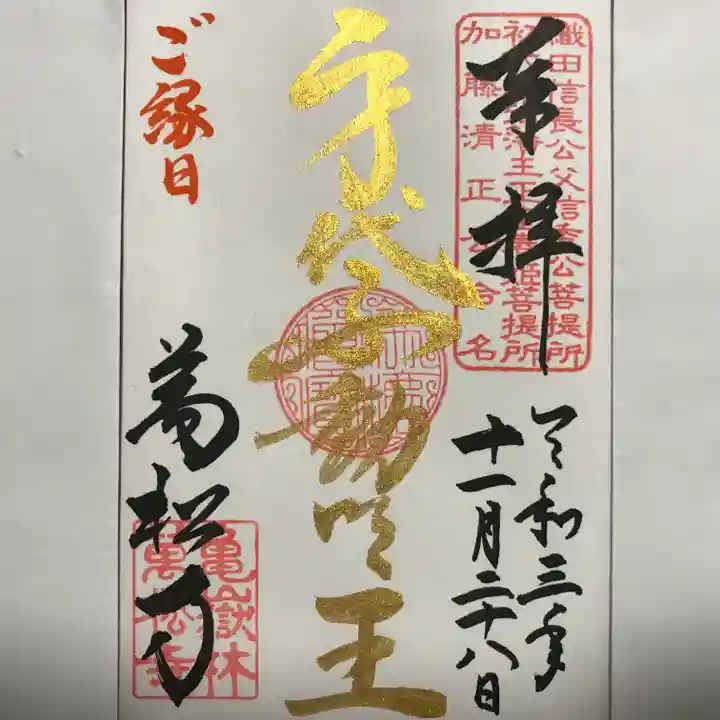 奉拝
織田信長公父信秀公菩提所
加藤清正公命名
令和三年
十一月二十八日
身代不動明王
ご縁日
萬松寺
亀嶽林
萬松寺